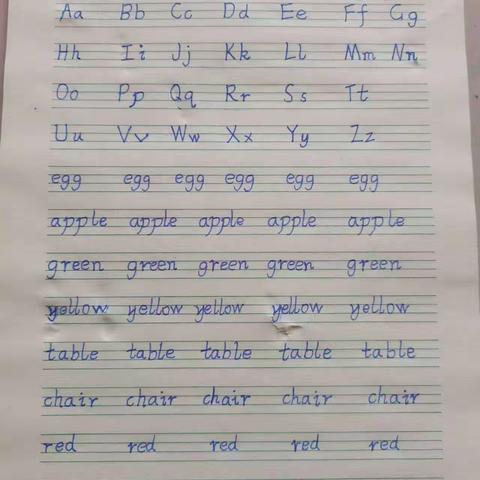 Aa Bb Cc Dd Ee Ff Gg
Hh Ii Jj Kk Ll Mm Nn
Oo Pp Qq Rr Ss Tt
Uu Vv Ww Xx Yy Zz
egg egg egg egg egg egg
apple apple apple apple apple
green green green green green
yellow yellow yellow yellow yellow
table table table table table
chair chair chair chair chair
red red red red red